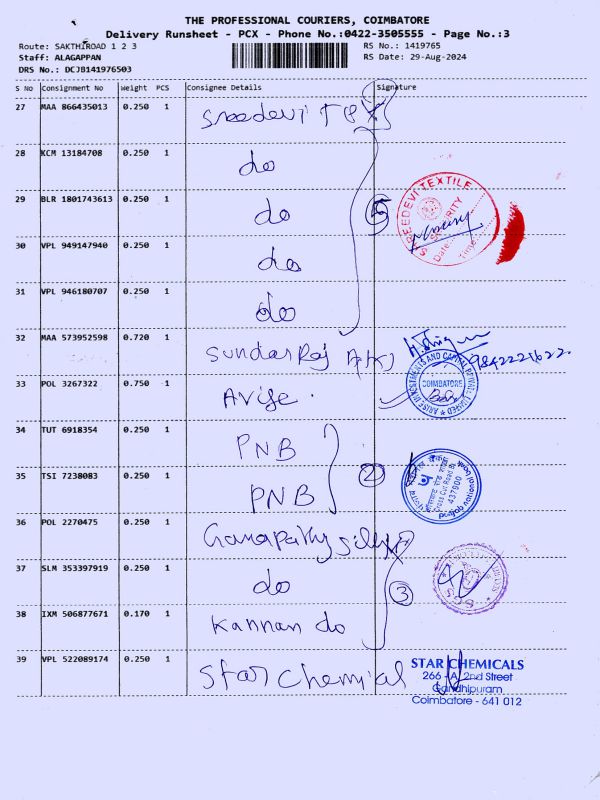 THE PROFESSIONAL COURIERS, COIMBATORE
Delivery Runsheet - PCX - Phone No.:0422-3505555 - Page No.:3
Route: SAKTHIROAD 1 2 3
RS No.: 1419765
Staff: ALAGAPPAN
RS Date: 29-Aug-2024
DRS No.: DCJB141976503
S No Consignment No Weight PCS Consignee Details Signature
27 MAA 866435013 0.250 1 Sreedevi
28 KCM 13184708 0.250 1 do
29 BLR 1801743613 0.250 1 do
5
SREEDEVI TEXTILE
SECURITY
Date
Time
30 VPL 949147940 0.250 1 do
31 VPL 946180707 0.250 1 do
32 MAA 573952598 0.720 1 Sundar Raj
9842221622
33 POL 3267322 0.750 1 Arise.
ARISE INVESTMENTS AND CAPITAL PRIVATE LIMITED
COIMBATORE
34 TUT 6918354 0.250 1 PNB
35 TSI 7238083 0.250 1 PNB
2
Cross Cut Road Br
437900
punjab national bank
36 POL 2270475 0.250 1 Ganapathy silks
37 SLM 353397919 0.250 1 do
3
38 IXM 506877671 0.170 1 Kannan do
39 VPL 522089174 0.250 1 Star Chemical
STAR CHEMICALS
266 - A, 2nd Street
Gandhipuram
Coimbatore - 641 012